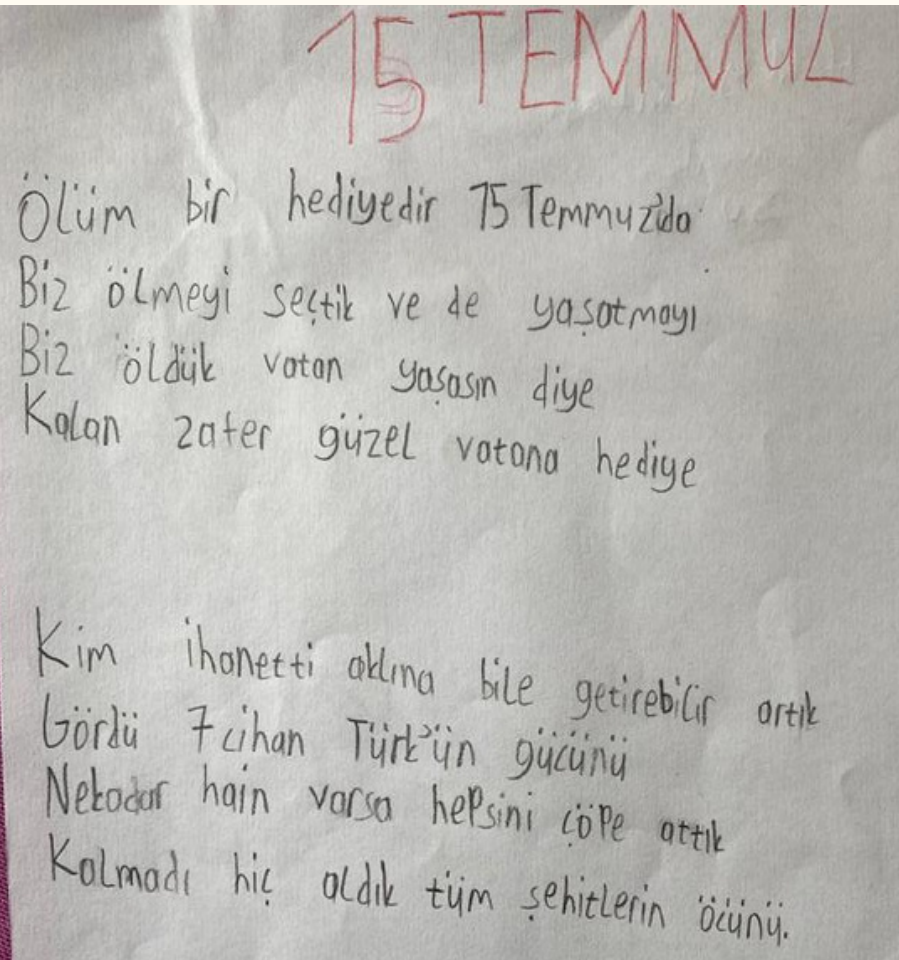 15 TEMMUZ
Ölüm bir hediyedir 15 Temmuz'da
Biz ölmeyi seçtik ve de yaşatmayı
Biz öldük vatan yaşasın diye
Kalan zafer güzel vatana hediye
Kim ihanetti aklına bile getirebilir artık
Gördü 7 cihan Türk'ün gücünü
Nekadar hain varsa hepsini çöpe attık
Kalmadı hiç aldık tüm şehitlerin öcünü.